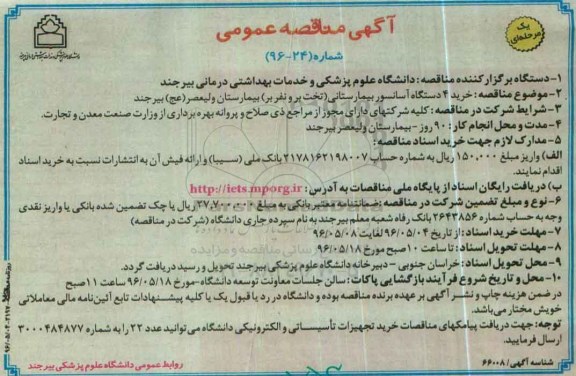 آگهی مناقصه عمومی
شماره(۲۴-۹۶)
یک
مرحله‌ای
۱-دستگاه برگزار کننده مناقصه: دانشگاه علوم پزشکی و خدمات بهداشتی درمانی بیرجند
۲-موضوع مناقصه: خرید ۴ دستگاه آسانسور بیمارستانی (تخت بر و نفر بر) بیمارستان ولیعصر(عج) بیرجند
۳-شرایط شرکت در مناقصه: کلیه شرکتهای دارای مجوز از مراجع ذی صلاح و پروانه بهره برداری از وزارت صنعت معدن و تجارت.
۴-مدت و محل انجام کار: ۹۰ روز -بیمارستان ولیعصر بیرجند
۵-مدارک لازم جهت خرید اسناد مناقصه:
الف) واریز مبلغ ۱۵۰,۰۰۰ ریال به شماره حساب ۲۱۷۸۱۶۲۱۹۸۰۰۷ بانک ملی (سیبا) و ارائه فیش آن به انتشارات نسبت به خرید اسناد
اقدام نمایند.
ب) دریافت رایگان اسناد از پایگاه ملی مناقصات به آدرس: http://iets.mporg.ir
۶-نوع و مبلغ تضمین شرکت در مناقصه: ضمانتنامه معتبر بانکی به مبلغ ۳۷,۷۰۰,۰۰۰ ریال یا چک تضمین شده بانکی یا واریز نقدی
وجه به حساب شماره ۲۶۴۳۸۵۶ بانک رفاه شعبه معلم بیرجند به نام سپرده جاری دانشگاه (شرکت در مناقصه)
۷-مهلت خرید اسناد: از تاریخ ۹۶/۰۵/۰۴ لغایت ۹۶/۰۵/۰۸
۸-مهلت تحویل اسناد: تا ساعت ۱۰ صبح مورخ ۹۶/۰۵/۱۸
۹-محل تحویل اسناد: خراسان جنوبی - دبیرخانه دانشگاه علوم پزشکی بیرجند تحویل و رسید دریافت گردد.
۱۰-محل و تاریخ شروع فرآیند بازگشایی پاکات: سالن جلسات معاونت توسعه دانشگاه-مورخ ۹۶/۰۵/۱۸ ساعت ۱۱ صبح
در ضمن هزینه چاپ و نشر آگهی بر عهده برنده مناقصه بوده و دانشگاه در رد یا قبول یک یا کلیه پیشنهادات تابع آئین‌نامه مالی معاملاتی
خویش مختار می‌باشد.
توجه: جهت دریافت پیامکهای مناقصات خرید تجهیزات تأسیساتی و الکترونیکی دانشگاه می‌توانید عدد ۲۲ را به شماره ۳۰۰۰۴۸۴۸۷۷
ارسال فرمایید.
شناسه آگهی/ ۶۶۰۰۸
روابط عمومی دانشگاه علوم پزشکی بیرجند